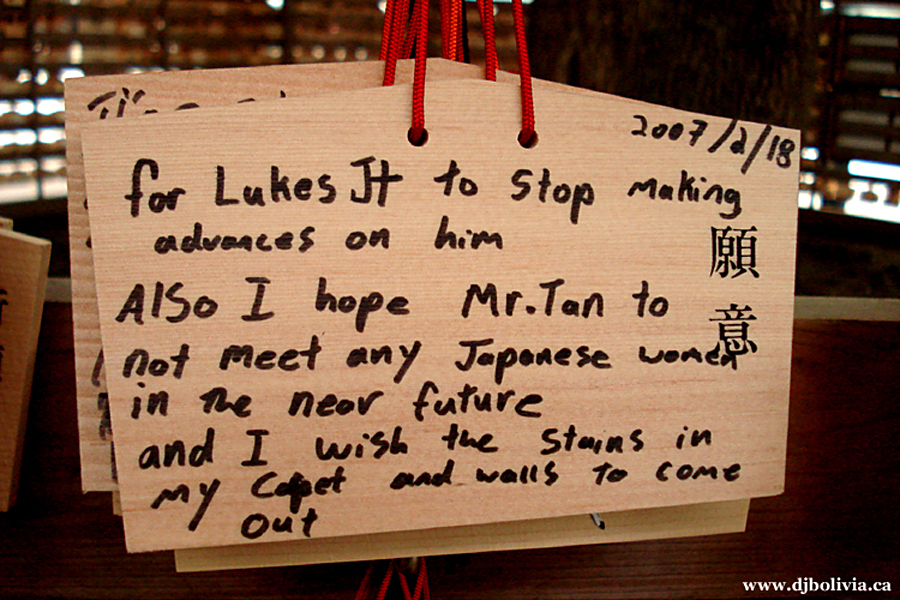 2007/2/18
for Lukes Jt to stop making
advances on him
Also I hope Mr.Tan to
not meet any Japanese women
in the near future
and I wish the stains in
my Carpet and walls to come
out
願意
www.djbolivia.ca